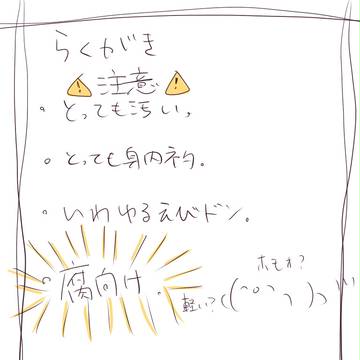 らくがき
⚠注意⚠
・とっても汚い。
・とっても身内ネタ。
・いわゆるえびドン。
・腐向け。
ホモォ?
軽い?